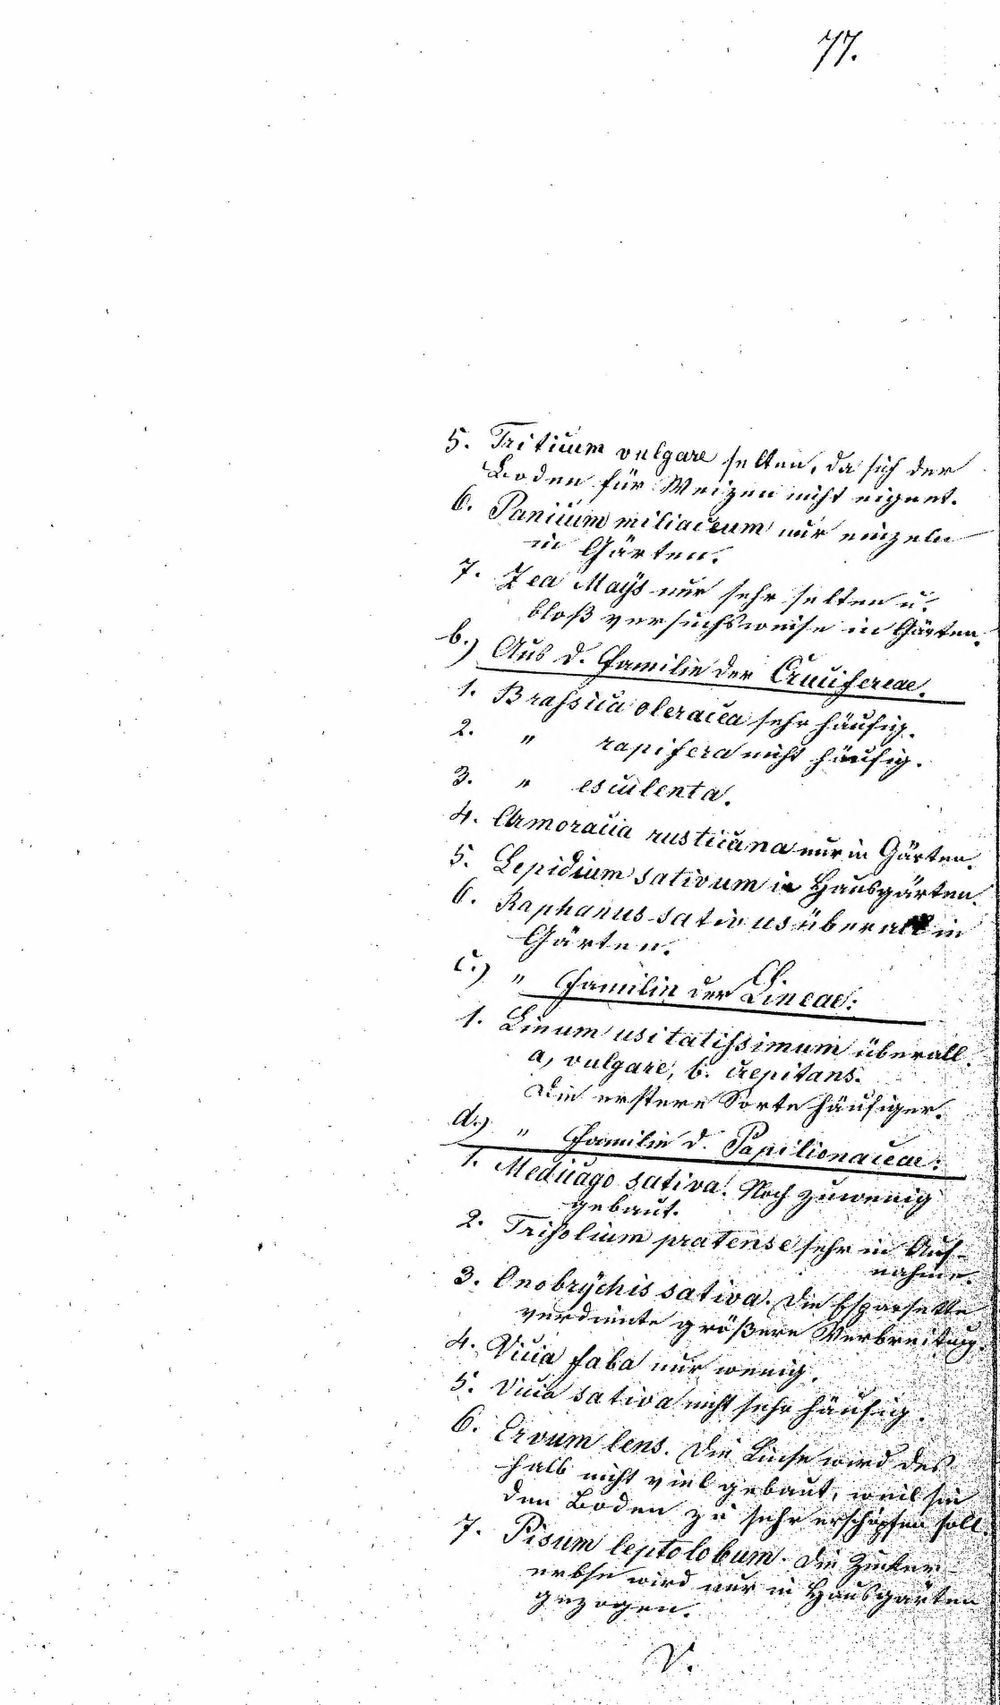 77.
5. Triticum vulgare selten, da sich der
Boden für Weizen nicht eignet.
6. Panicum miliaceum nur einzeln
in Gärten.
7. Zea Maÿs nur sehr selten u.
bloß versuchsweise in Gärten.
b.) Aus d. Familie der Crucifereae.
1. Brassica oleracea sehr häufig.
2. " rapifera nicht häufig.
3. " esculenta.
4. Armoracia rusticana nur in Gärten.
5. Lepidium sativum in Hausgärten.
6. Raphanus sativus überall in
Gärten.
c.) " Familie der Lineae:
1. Linum usitatissimum überall.
a, vulgare, b. crepitans.
Die erstere Sorte häufiger.
d.) " Familie d. Papilionaceae:
1. Medicago sativa. Noch zuwenig
gebaut.
2. Trifolium pratense sehr in Auf-
nahme.
3. Onobrÿchis sativa. Die Esparsette
verdiente größere Verbreitung.
4. Vicia faba nur wenig.
5. Vicia sativa nicht sehr häufig.
6. Ervum lens. Die Linse wird des
halb nicht viel gebaut, weil sie
den Boden zu sehr erschöpfen soll.
7. Pisum leptolobum. Die Zucker-
erbse wird nur in Hausgärten
gezogen.
V.